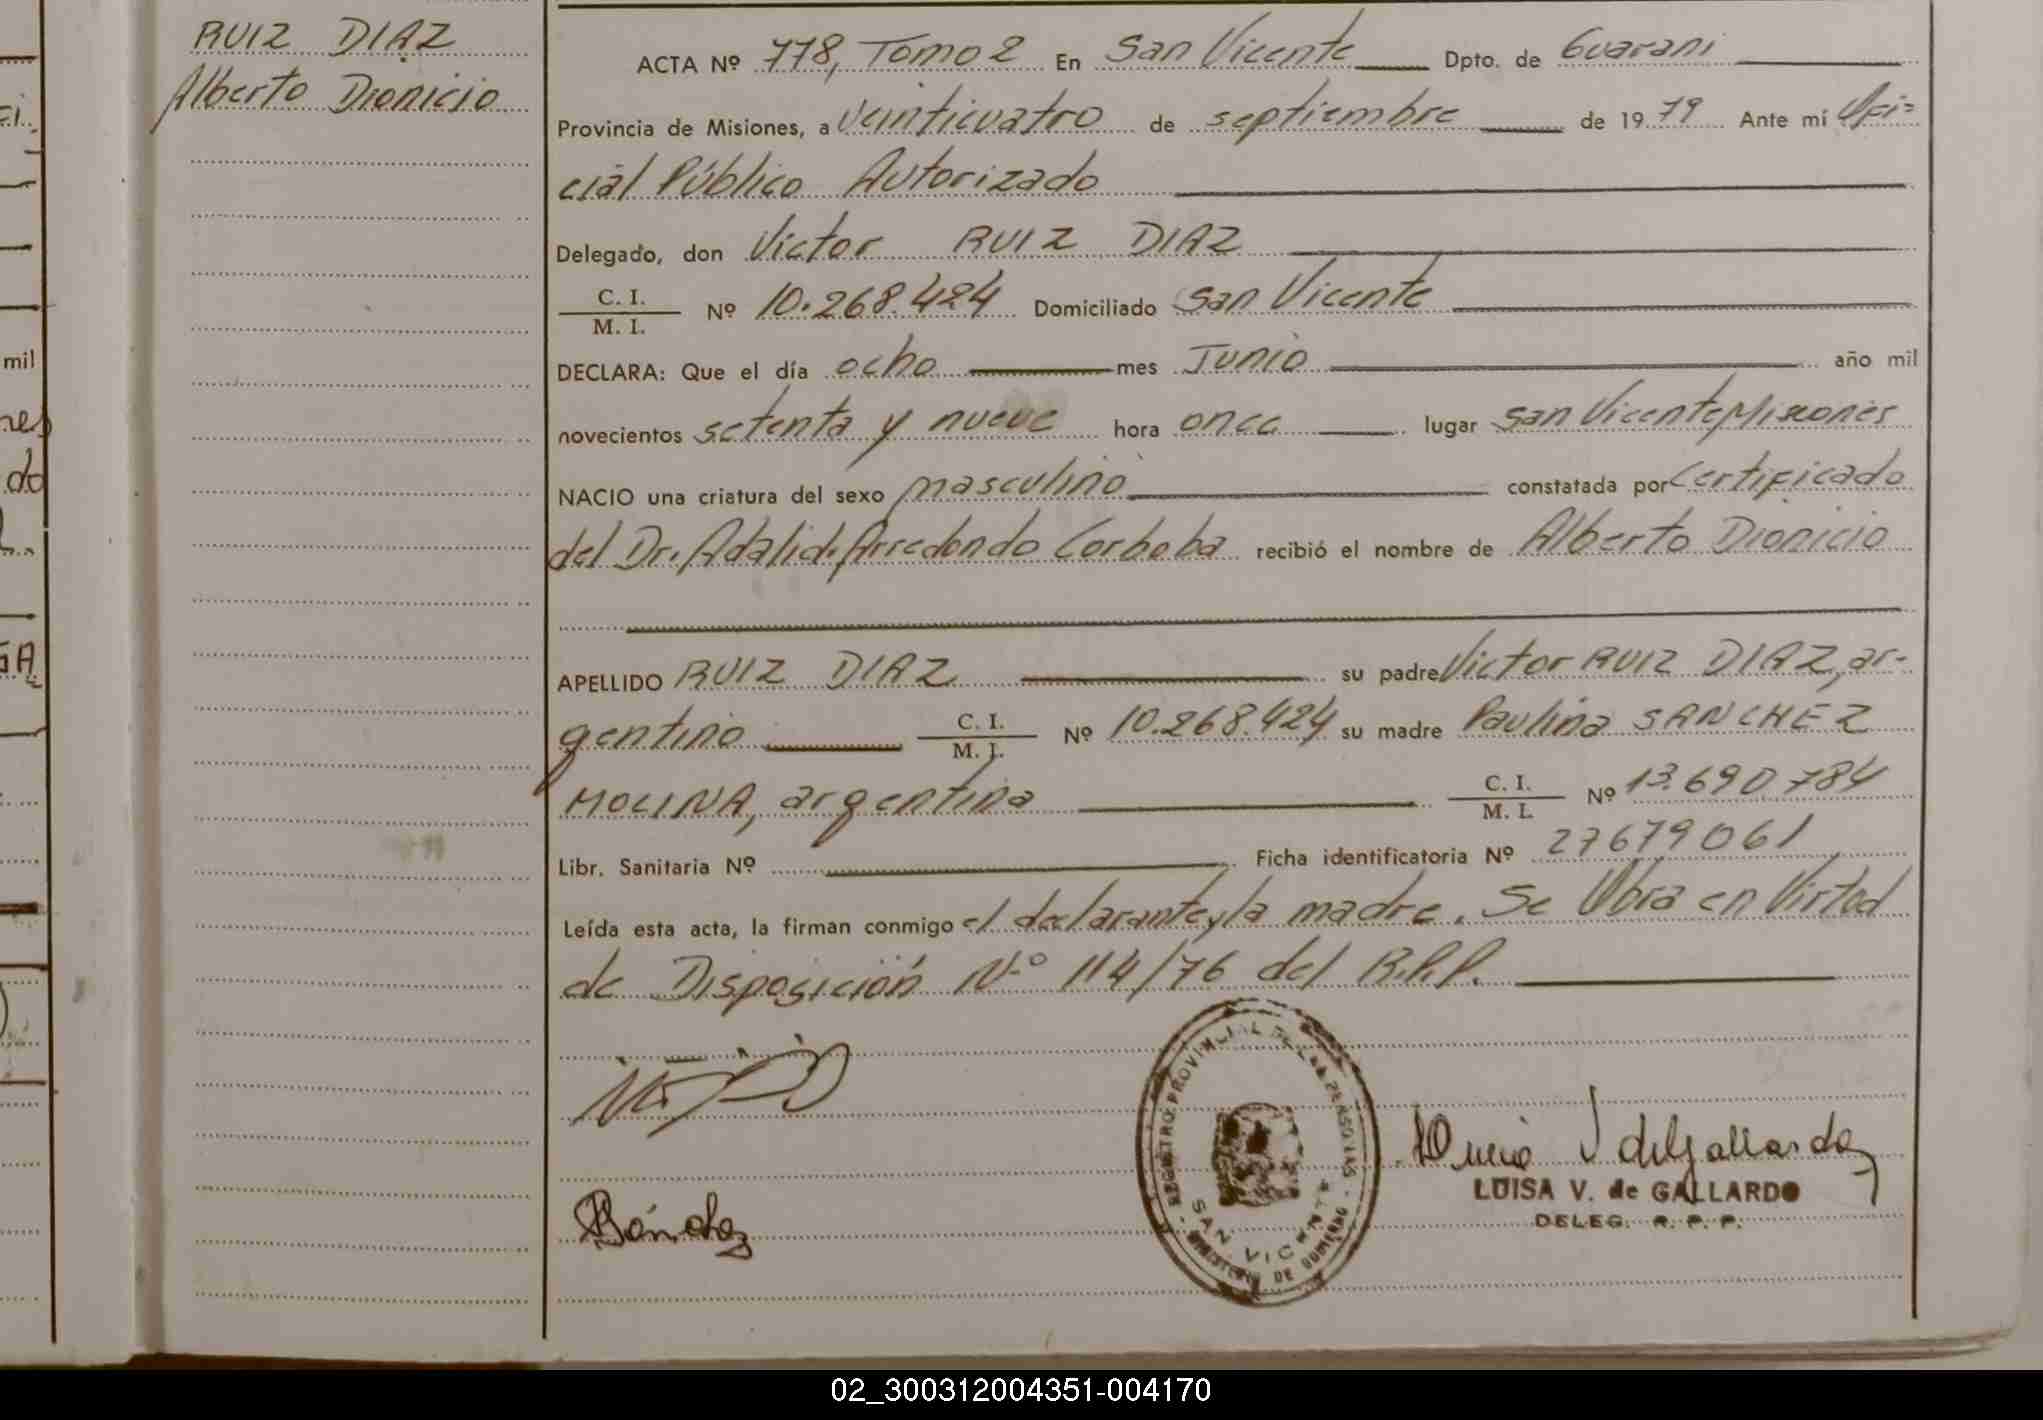 RUIZ DIAZ
Alberto Dionicio
ACTA Nº 778, Tomo 2 En San Vicente Dpto. de Guarani
Provincia de Misiones, a veinticuatro de septiembre de 1979 Ante mí Ofi=
cial Público Autorizado
Delegado, don Victor RUIZ DIAZ
C. I.
M. I. Nº 10.268.424 Domiciliado San Vicente
DECLARA: Que el día ocho mes Junio año mil
novecientos setenta y nueve hora once lugar San Vicente Misiones
NACIO una criatura del sexo masculino constatada por Certificado
del Dr. Adalid Arredondo Corboba recibió el nombre de Alberto Dionicio
APELLIDO RUIZ DIAZ su padre Victor RUIZ DIAZ, ar-
gentino C. I. M. I. Nº 10.268.424 su madre Paulina SANCHEZ
MOLINA, argentina C. I. M. I. Nº 13.690784
Libr. Sanitaria Nº Ficha identificatoria Nº 27679061
Leída esta acta, la firman conmigo el declarante y la madre. Se Obra en Virtud
de Disposición Nº 114/76 del R.P.P.
REGISTRO PROVINCIAL DE LAS PERSONAS
SAN VICENTE
MINISTERIO DE GOBIERNO
Sánchez
LUISA V. de GALLARDO
DELEG. R. P. P.
mil
nes
do
GA
02_300312004351-004170